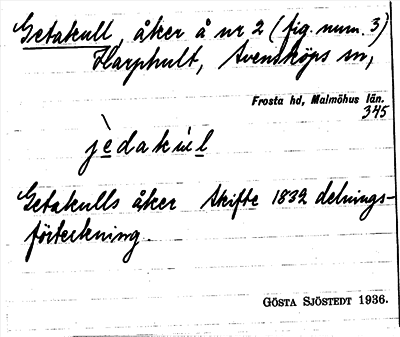 Getakull, åker å nr 2 (fig. num. 3)
Harphult, Svensköps sn,
Frosta hd, Malmöhus län.
345
jèdakùl
Getakulls åker Skifte 1832 delnings-
förteckning.
GÖSTA SJÖSTEDT 1936.